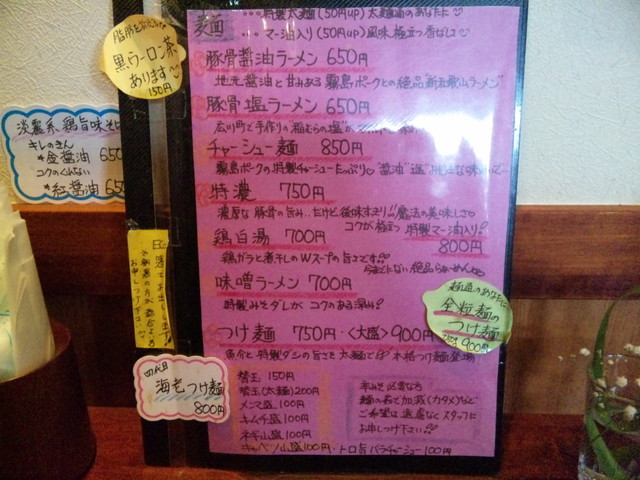 麺
特製太麺(50円up)太麺派のあなたに
マー油入り(50円up)風味極立つ香ばしさ
豚骨醤油ラーメン 650円
地元醤油と甘みある霧島ポークとの絶品"新和歌山ラーメン"
豚骨塩ラーメン 650円
広川町で手作りの"稲むらの塩"
チャーシュー麺 850円
霧島ポークの特製チャーシューたっぷり "醤油" "塩" お好きな味
特濃 750円
濃厚な豚骨の旨み…だけど後味すっきり!!魔法の美味しさ
コクが極立つ 特製マー油入り
800円
鶏白湯 700円
鶏ガラと煮干しのWスープの旨さです
今までにない絶品らぁめん
味噌ラーメン 700円
特製みそダレが コクのある深み
つけ麺 750円・<大盛>900円
魚介と特製ダシの旨さを太麺で 本格つけ麺登場
替玉 150円
替玉(太麺)200円
メンマ盛 100円
キムチ盛 100円
ネギ山盛 100円
キャベツ山盛 100円・トロ旨バラチャーシュー 100円
麺の茹で加減(カタメ)など
ご希望は遠慮なくスタッフに
お申しつけ下さい
黒ウーロン茶
あります
150円
淡麗系鶏旨味そば
キレのきん
*金醤油 650
コクのくれない
*紅醤油 650
四代目
海老つけ麺
800円
麺通のあなたに
全粒麺の
つけ麺
900円